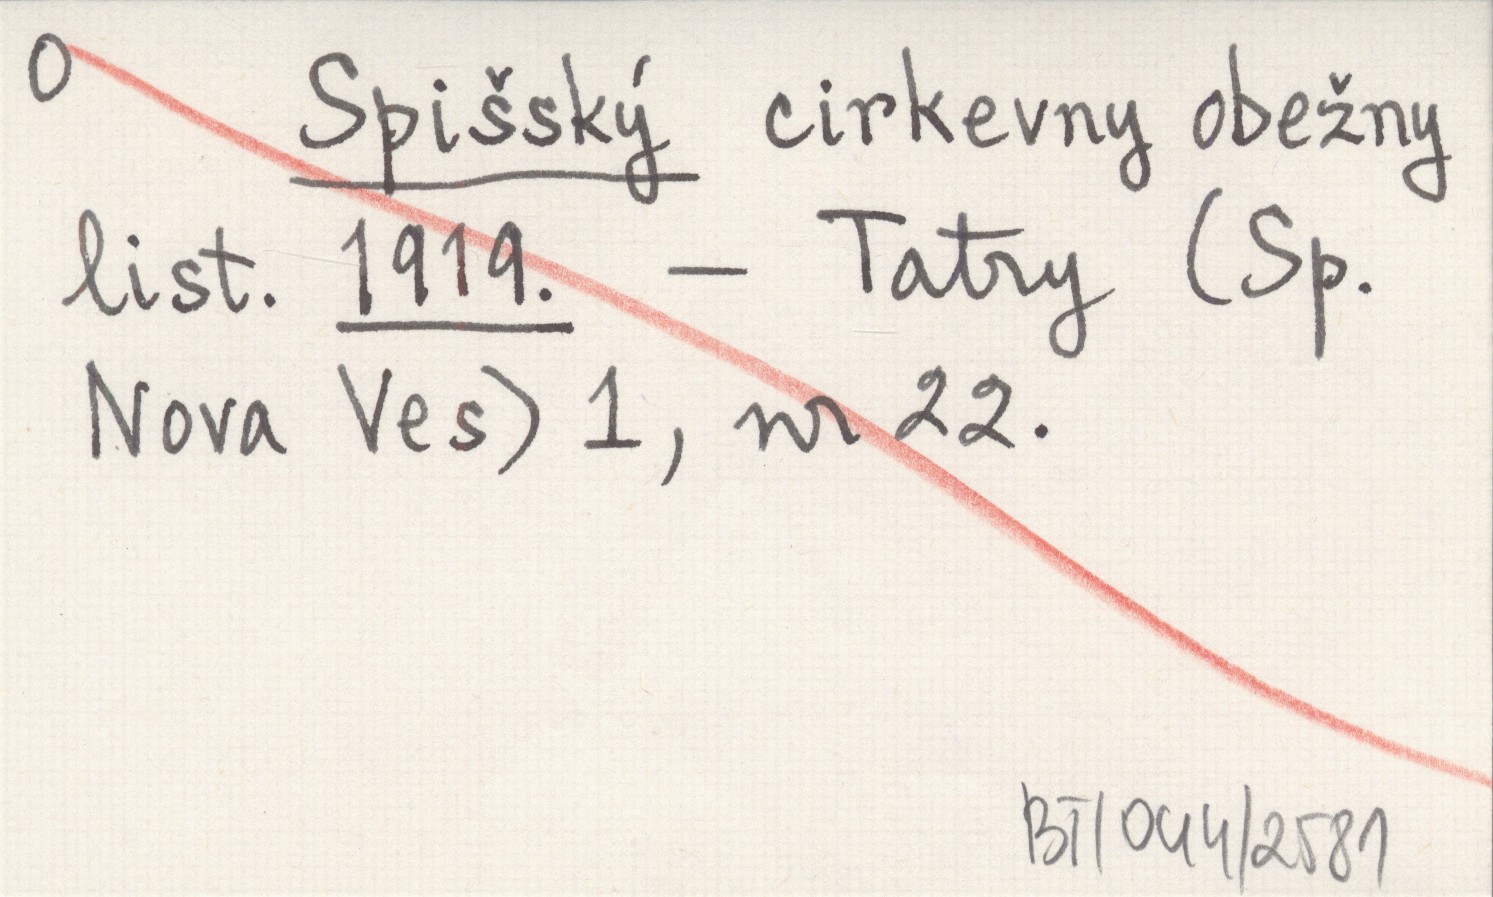 O
Spišský cirkevny obežny
list. 1919. — Tatry (Sp.
Nova Ves) 1, nr 22.
BT/044/2581